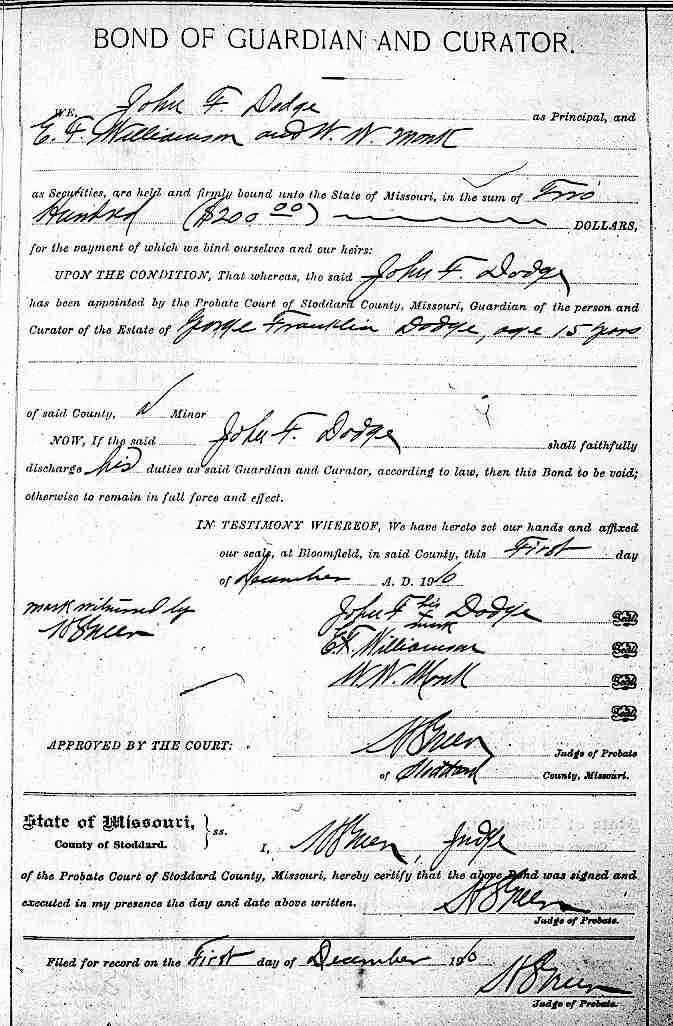 BOND OF GUARDIAN AND CURATOR.
WE, John F. Dodge as Principal, and
E. F. Williamson and W. W. Monk
as Securities, are held and firmly bound unto the State of Missouri, in the sum of Two
Hundred ($200.00) DOLLARS,
for the payment of which we bind ourselves and our heirs:
UPON THE CONDITION, That whereas, the said John F. Dodge
has been appointed by the Probate Court of Stoddard County, Missouri, Guardian of the person and
Curator of the Estate of George Franklin Dodge, age 15 years
of said County, Minor
NOW, If the said John F. Dodge shall faithfully
discharge his duties as said Guardian and Curator, according to law, then this Bond to be void;
otherwise to remain in full force and effect.
IN TESTIMONY WHEREOF, We have hereto set our hands and affixed
our seals, at Bloomfield, in said County, this First day
of December A. D. 19
mark witnessed by
John F. his mark Dodge Seal
Green
E. F. Williamson Seal
W. W. Monk Seal
Seal
APPROVED BY THE COURT: Green Judge of Probate
of Stoddard County, Missouri.
State of Missouri, } ss.
County of Stoddard.
I, Green, Judge
of the Probate Court of Stoddard County, Missouri, hereby certify that the above Bond was signed and
executed in my presence the day and date above written. Green
Judge of Probate.
Filed for record on the First day of December 19
Green
Judge of Probate.